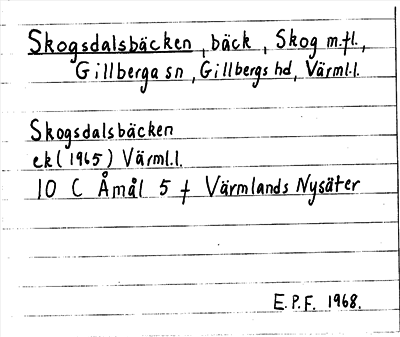 Skogsdalsbäcken, bäck, Skog m.fl.,
Gillberga sn, Gillbergs hd, Värml.l.
Skogsdalsbäcken
ek (1965) Värml.l.
10 C Åmål 5 f Värmlands Nysäter
E.P.F. 1968.